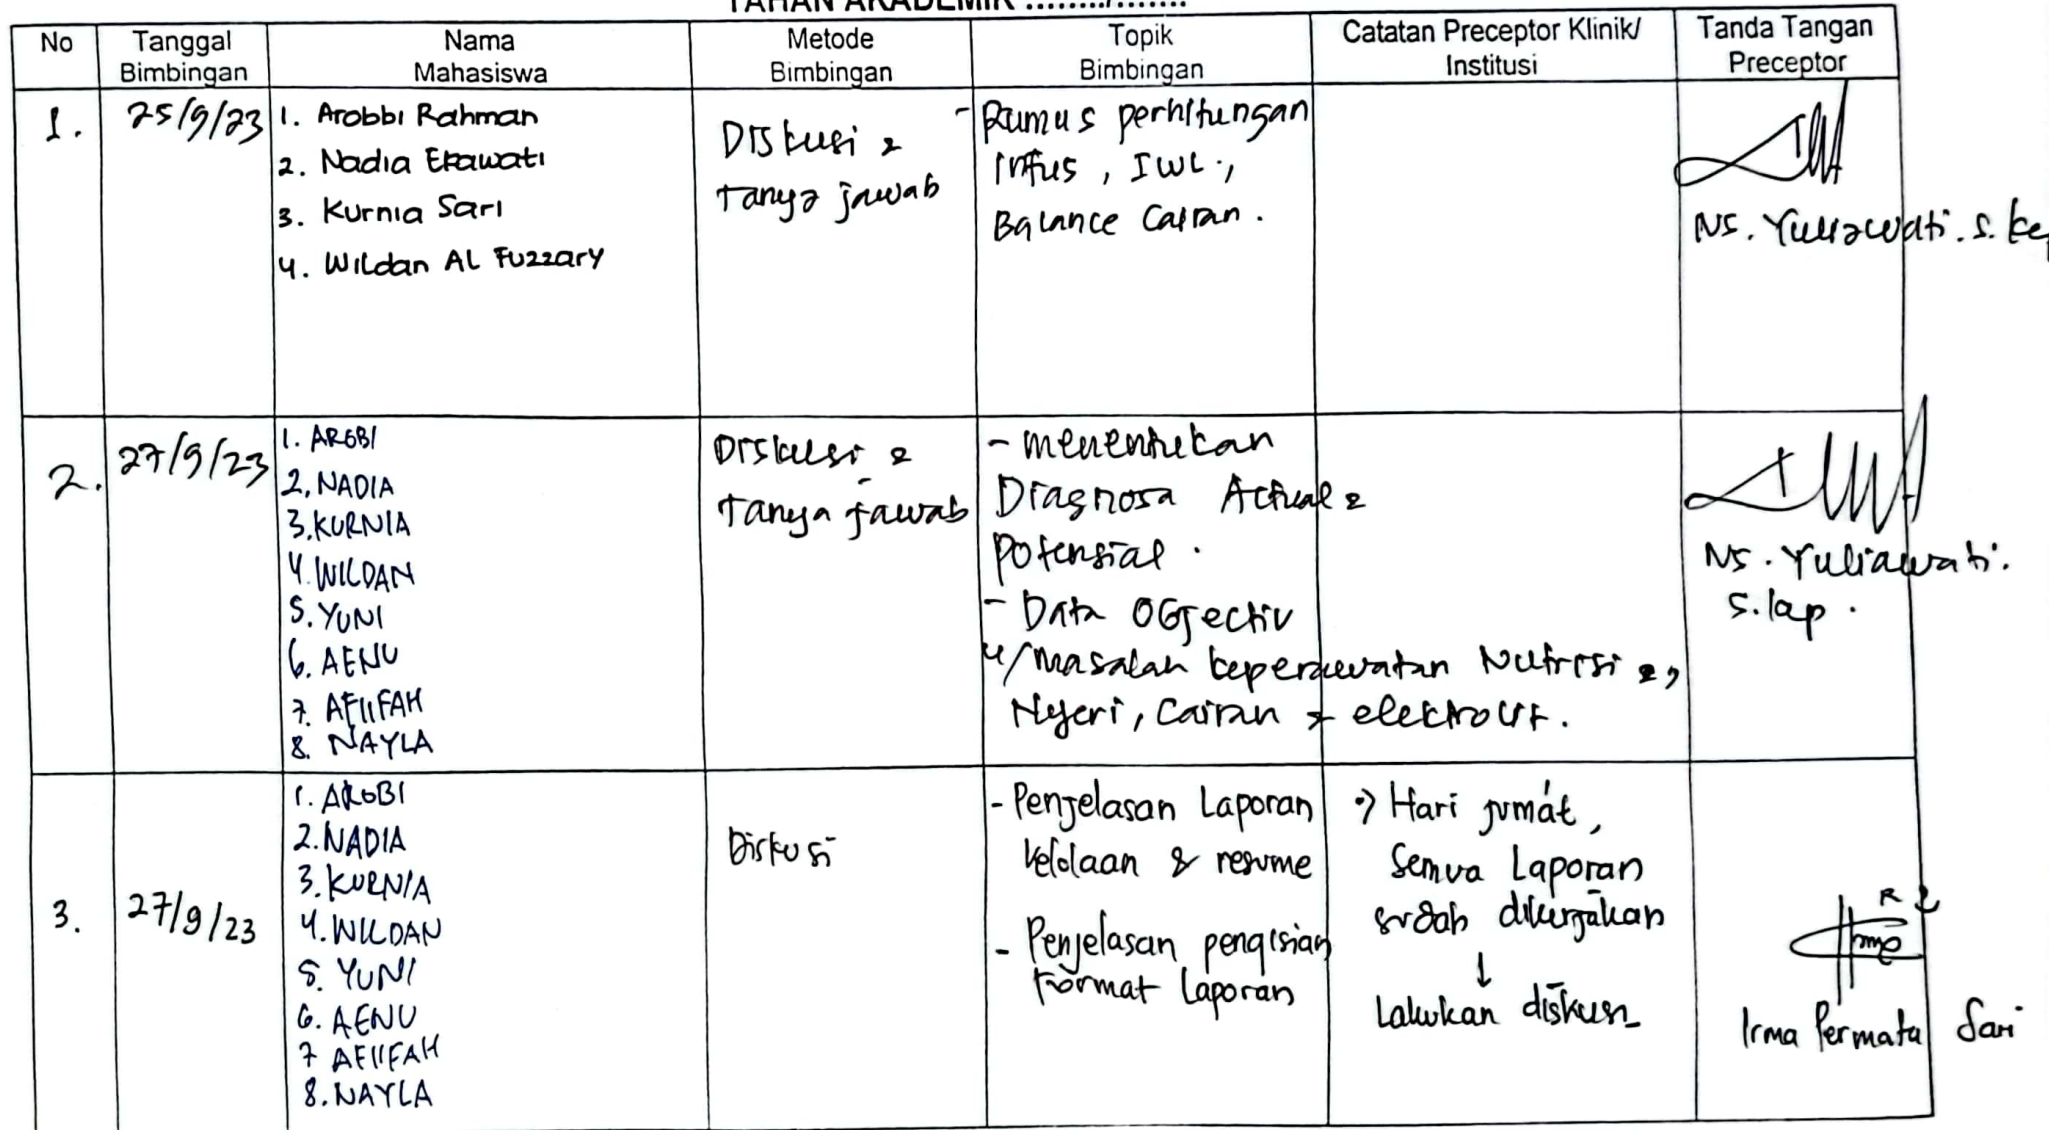 TAHAN AKADEMIK ......../.......
No
Tanggal
Bimbingan
Nama
Mahasiswa
Metode
Bimbingan
Topik
Bimbingan
Catatan Preceptor Klinik/
Institusi
Tanda Tangan
Preceptor
1.
25/9/23
1. Arobbi Rahman
2. Nadia Ekawati
3. Kurnia Sari
4. Wildan Al Fuzzary
Diskusi &
Tanya jawab
- Rumus perhitungan
Infus, IWL.,
Balance Cairan.
Ns. Yuliawati. S. Kep
2.
27/9/23
1. AROBI
2. NADIA
3. KURNIA
4. WILDAN
5. YUNI
6. AENU
7. AFIIFAH
8. NAYLA
Diskusi &
Tanya jawab
- Menentukan
Diagnosa Actual &
Potensial.
- Data Objectiv
u/ masalah keperawatan Nutrisi &,
Nyeri, Cairan & electrolit.
Ns. Yuliawati.
S.kep.
3.
27/9/23
1. AROBI
2. NADIA
3. KURNIA
4. WILDAN
5. YUNI
6. AENU
7 AFIIFAH
8. NAYLA
Diskusi
- Penjelasan Laporan
kelolaan & resume
- Penjelasan pengisian
Format Laporan
Hari jumát,
Semua Laporan
sudah dikerjakan
↓
Lakukan diskusi
Irma Permata Sari